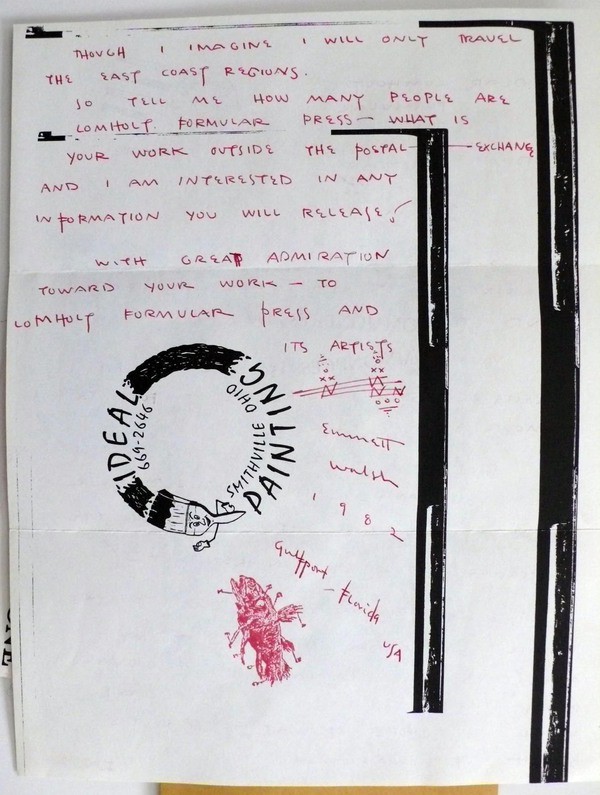 THOUGH I IMAGINE I WILL ONLY TRAVEL
THE EAST COAST REGIONS.
SO TELL ME HOW MANY PEOPLE ARE
LOMHOLT FORMULAR PRESS — WHAT IS
YOUR WORK OUTSIDE THE POSTAL — EXCHANE
AND I AM INTERESTED IN ANY
INFORMATION YOU WILL RELEASE!
WITH GREAT ADMIRATION
TOWARD YOUR WORK — TO
LOMHOLT FORMULAR PRESS AND
ITS ARTISTS
IDEAL PAINTING
669-2646 SMITHVILLE OHIO
Emmett
Walsh
1982
Gulfport — Florida
USA